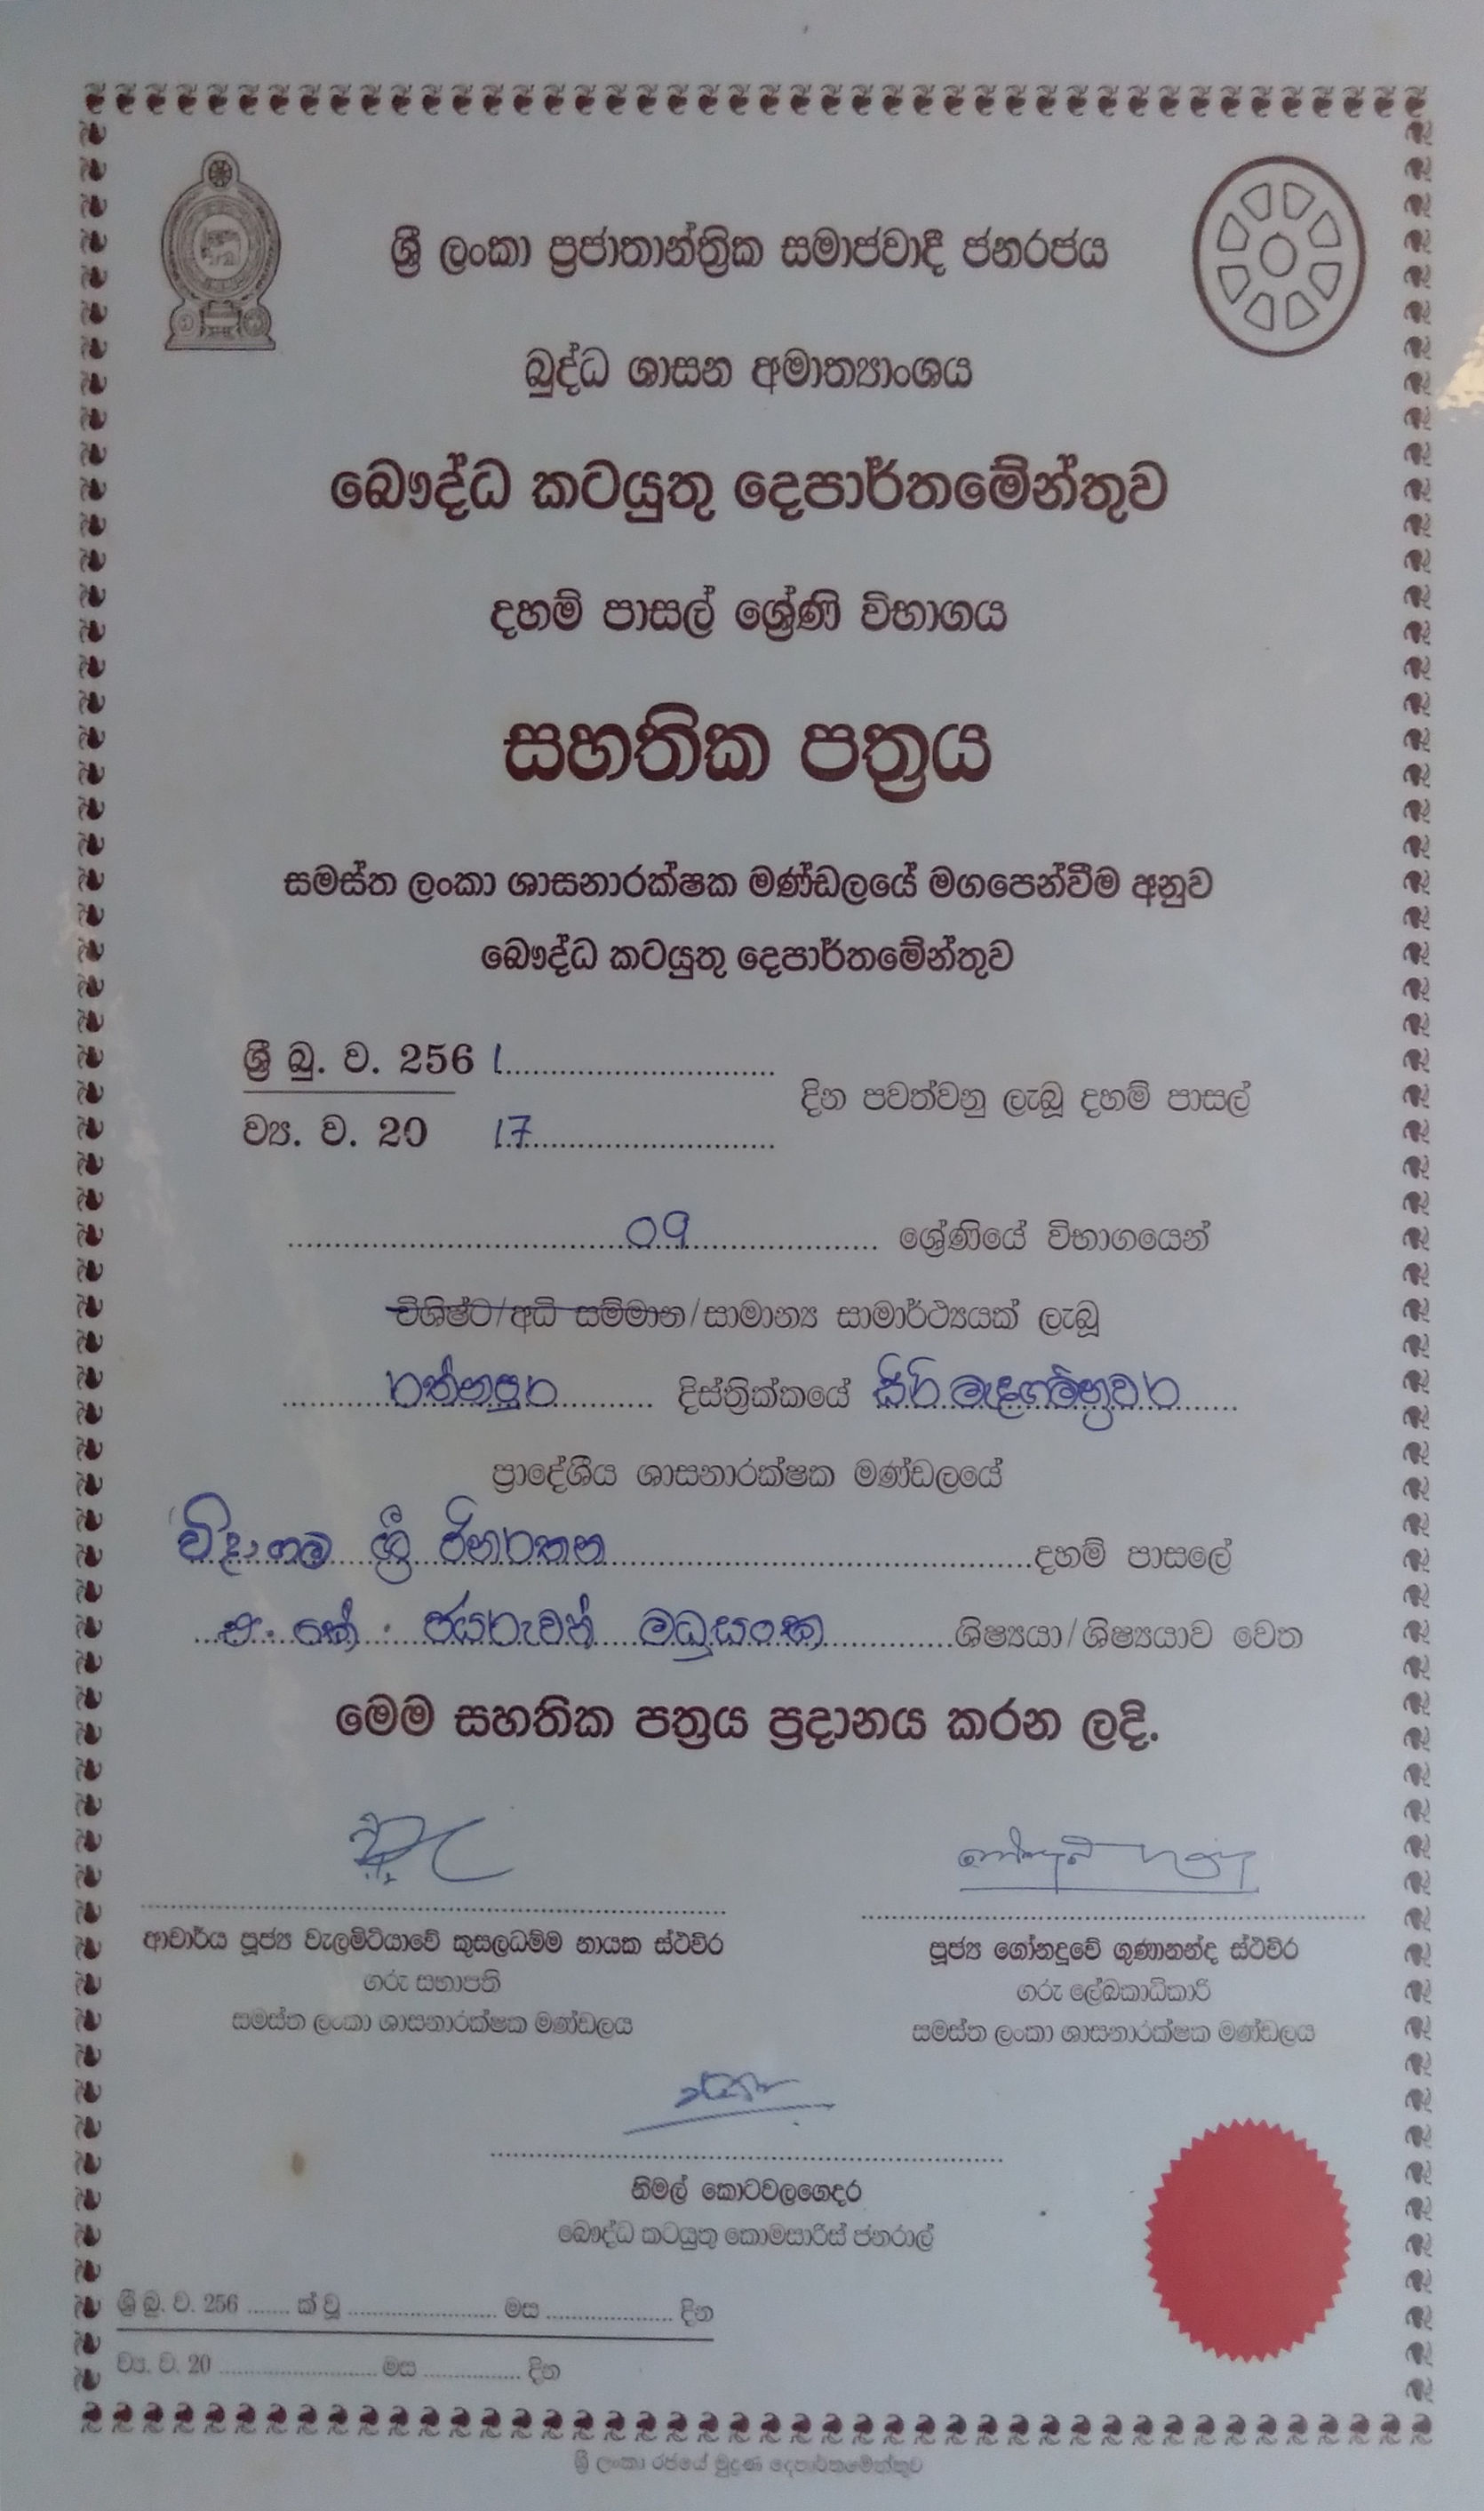 ශ්‍රී ලංකා ප්‍රජාතාන්ත්‍රික සමාජවාදී ජනරජය
බුද්ධ ශාසන අමාත්‍යාංශය
බෞද්ධ කටයුතු දෙපාර්තමේන්තුව
දහම් පාසල් ශ්‍රේණි විභාගය
සහතික පත්‍රය
සමස්ත ලංකා ශාසනාරක්ෂක මණ්ඩලයේ මගපෙන්වීම අනුව
බෞද්ධ කටයුතු දෙපාර්තමේන්තුව
ශ්‍රී බු. ව. 256 1
ව්‍ය. ව. 20 17
දින පවත්වනු ලැබූ දහම් පාසල්
09 ශ්‍රේණියේ විභාගයෙන්
විශිෂ්ට/අධි සම්මාන/සාමාන්‍ය සාමාර්ථ්‍යයක් ලැබූ
රත්නපුර දිස්ත්‍රික්කයේ සිරි මැදගම්නුවර
ප්‍රාදේශීය ශාසනාරක්ෂක මණ්ඩලයේ
ශ්‍රී ජිනරතන දහම් පාසලේ
ඒ. කේ. ජයරුවන් මධුසංඛ ශිෂ්‍යයා/ශිෂ්‍යයාව වෙත
මෙම සහතික පත්‍රය ප්‍රදානය කරන ලදි.
ආචාර්ය පූජ්‍ය වැලමිටියාවේ කුසලධම්ම නායක ස්ථවිර
ගරු සභාපති
සමස්ත ලංකා ශාසනාරක්ෂක මණ්ඩලය
පූජ්‍ය ගෝනදූවේ ගුණානන්ද ස්ථවිර
ගරු ලේඛකාධිකාරි
සමස්ත ලංකා ශාසනාරක්ෂක මණ්ඩලය
නිමල් කොටවලගෙදර
බෞද්ධ කටයුතු කොමසාරිස් ජනරාල්
ශ්‍රී බු. ව. 256 ....... ක් වූ .......................... මස ...................... දින
ව්‍ය. ව. 20 ........................... මස ................. දින
ශ්‍රී ලංකා රජයේ මුද්‍රණ දෙපාර්තමේන්තුව